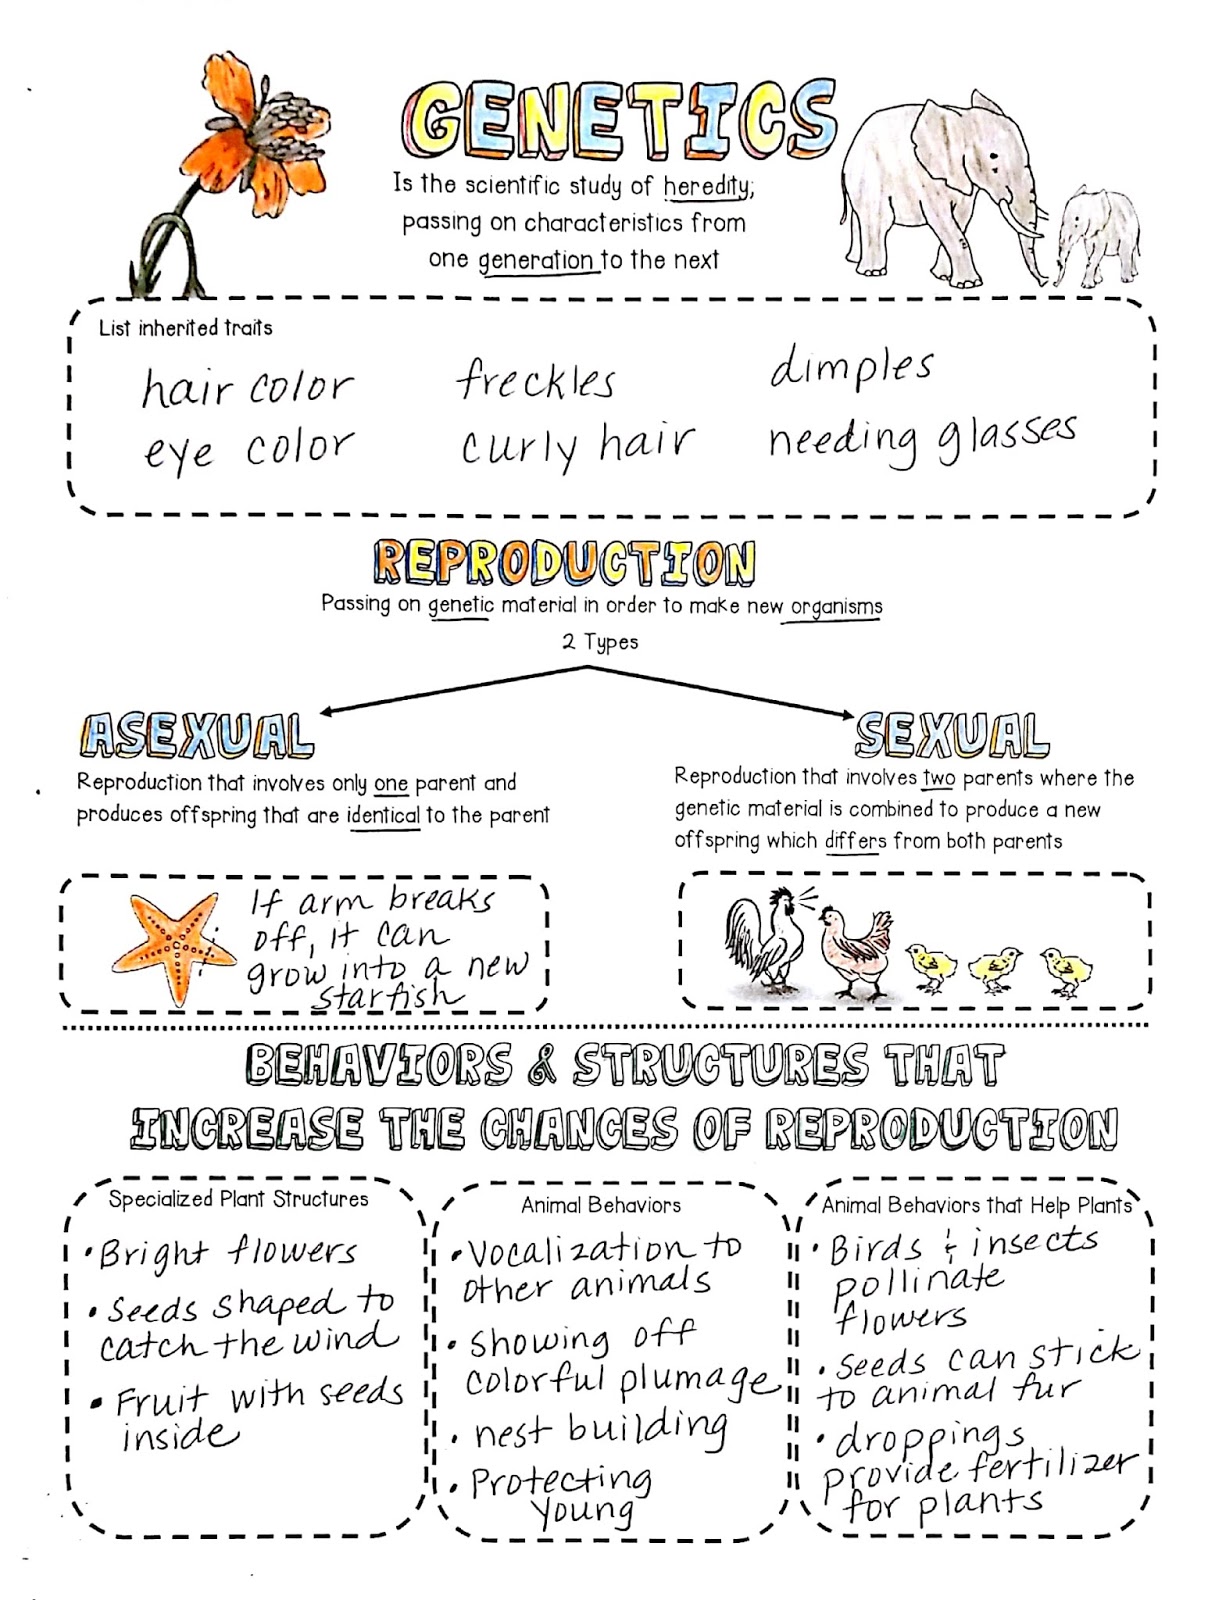 GENETICS
Is the scientific study of heredity;
passing on characteristics from
one generation to the next
List inherited traits
hair color freckles dimples
eye color curly hair needing glasses
REPRODUCTION
Passing on genetic material in order to make new organisms
2 Types
ASEXUAL
Reproduction that involves only one parent and
produces offspring that are identical to the parent
If arm breaks
off, it can
grow into a new
starfish
SEXUAL
Reproduction that involves two parents where the
genetic material is combined to produce a new
offspring which differs from both parents
BEHAVIORS & STRUCTURES THAT
INCREASE THE CHANCES OF REPRODUCTION
Specialized Plant Structures
• Bright flowers
• Seeds shaped to
catch the wind
• Fruit with seeds
inside
Animal Behaviors
• Vocalization to
other animals
• Showing off
colorful plumage
• nest building
• Protecting
young
Animal Behaviors that Help Plants
• Birds & insects
pollinate
flowers
• Seeds can stick
to animal fur
• droppings
provide fertilizer
for plants